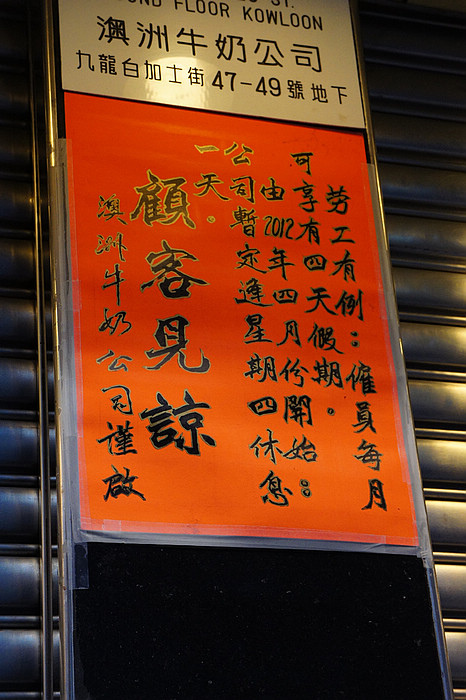 ST.
FLOOR KOWLOON
澳洲牛奶公司
九龍白加士街47-49號地下
勞工有例：僱員每月
可享有四天假期。
由2012年四月份開始：
公司暫定逢星期四休息
一天。
顧客見諒
澳洲牛奶公司謹啟